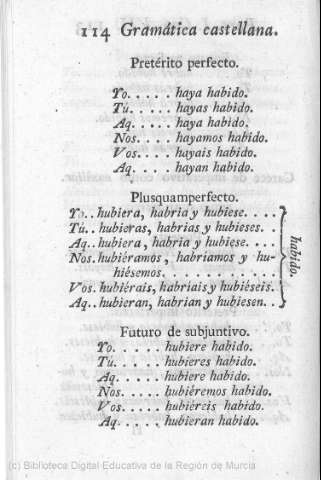 114 Gramática castellana.
Pretérito perfecto.
Yo. . . . . haya habido.
Tú. . . . . hayas habido.
Aq. . . . . haya habido.
Nos. . . . . hayamos habido.
Vos. . . . . hayais habido.
Aq. . . . . hayan habido.
Plusquamperfecto.
Yo. . hubiera, habria y hubiese. . . .
Tú. . hubieras, habrias y hubieses. .
Aq. . hubiera, habria y hubiese. . . .
Nos. hubiéramos, habríamos y hu-
biésemos. . . . . . . . . . .
Vos. hubiérais, habriais y hubiéseis.
Aq. . hubieran, habrian y hubiesen. .
habido.
Futuro de subjuntivo.
Yo. . . . . hubiere habido.
Tú. . . . . hubieres habido.
Aq. . . . . hubiere habido.
Nos. . . . . hubiéremos habido.
Vos. . . . . hubiéreis habido.
Aq. . . . . hubieran habido.
(c) Biblioteca Digital Educativa de la Región de Murcia